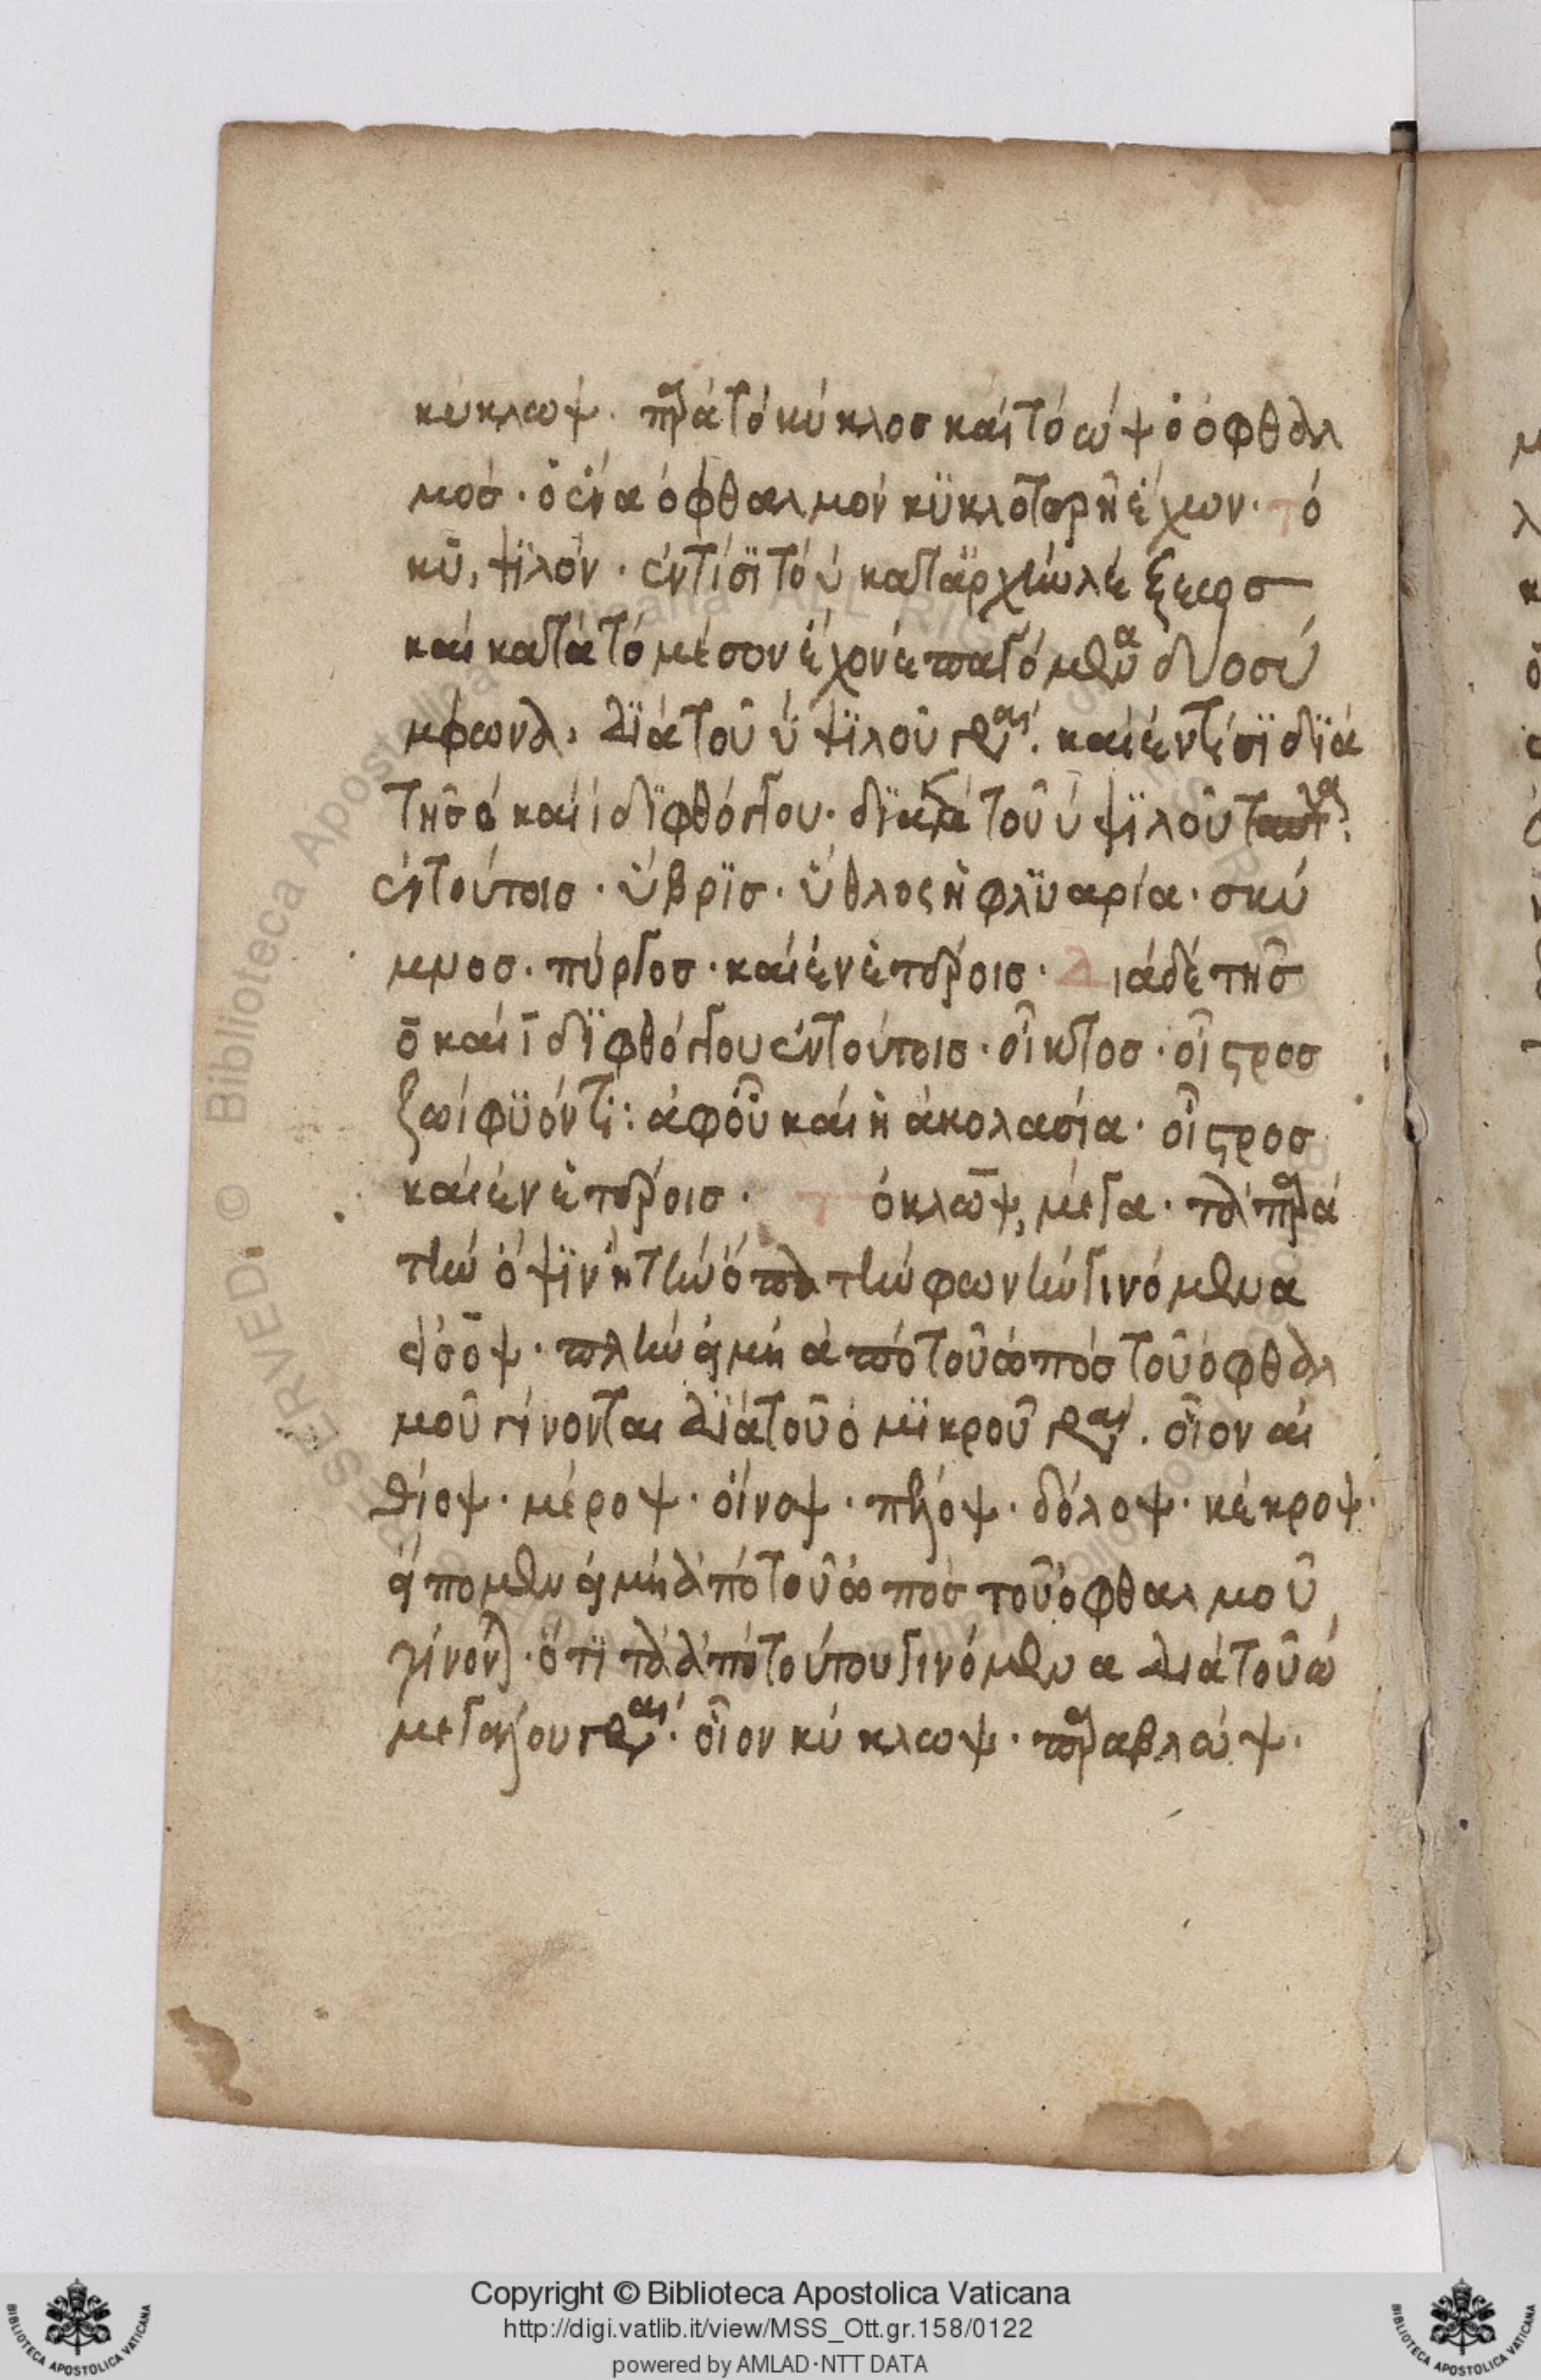 κύκλωψ. παρὰ τὸ κύκλος καὶ τὸ ὤψ ὁ ὀφθαλ
μός. ὁ ἕνα ὀφθαλμὸν κϋκλοτερῆ ἔχων. τὸ
κῡ, ψϊλόν. ἐντίσϊ τὸ ὐ κατἀρχὴν λέξεως
καὶ κατὰ τὸ μέσον ἔχον ἐπαγόμενα δύο σύ
μφωνα, δϊὰ τοῦ ὐ ψϊλοῦ γράφεται. καὶ ἐντίσϊ δϊὰ
τῆς ο καὶ ι δϊφθόγγου. δϊὰ τοῦ ὐ ψϊλοῦ ταῦτα.
ἐν τούτοις. ὕβρϊς. ὕθλος ἡ φλϋαρία. σκύ
μνος. πύργος. καὶ ἐν ἑτέροις. Διὰ δὲ τῆς
ο̄ καὶ ῑ δϊφθόγγου ἐν τούτοις. οἶκτος. οἶστρος
ζωΰφϊόν τι: ἀφοῦ καὶ ἡ ἀκολασία. οἶστρος
καὶ ἐν ἑτέροις. Τὸ κλω̄ψ, μέγα. τὰ παρὰ
τὴν ὄψϊν ἢ τὴν ὄπα τὴν φωνὴν γινόμενα
εἰς ο̄ψ. πλὴν εἰ μὴ ἀπὸ τοῦ ὠπὸς τοῦ ὀφθαλ
μοῦ γίνονται δϊὰ τοῦ ὀ μϊκροῦ γράφεται. οἷον αἰ
θίοψ. μέροψ. οἶνοψ. πέλοψ. δόλοψ. κέκροψ.
εἴπομεν εἰ μὴ ἀπὸ τοῦ ὠπὸς τοῦ ὀφθαλμοῦ
γίνονται. ὅτϊ τὰ ἀπὸ τούτου γινόμενα διὰ τοῦ ὠ
μεγάλου γράφεται. οἷον κύκλωψ. παραβλώψ.
Copyright © Biblioteca Apostolica Vaticana
http://digi.vatlib.it/view/MSS_Ott.gr.158/0122
powered by AMLAD·NTT DATA